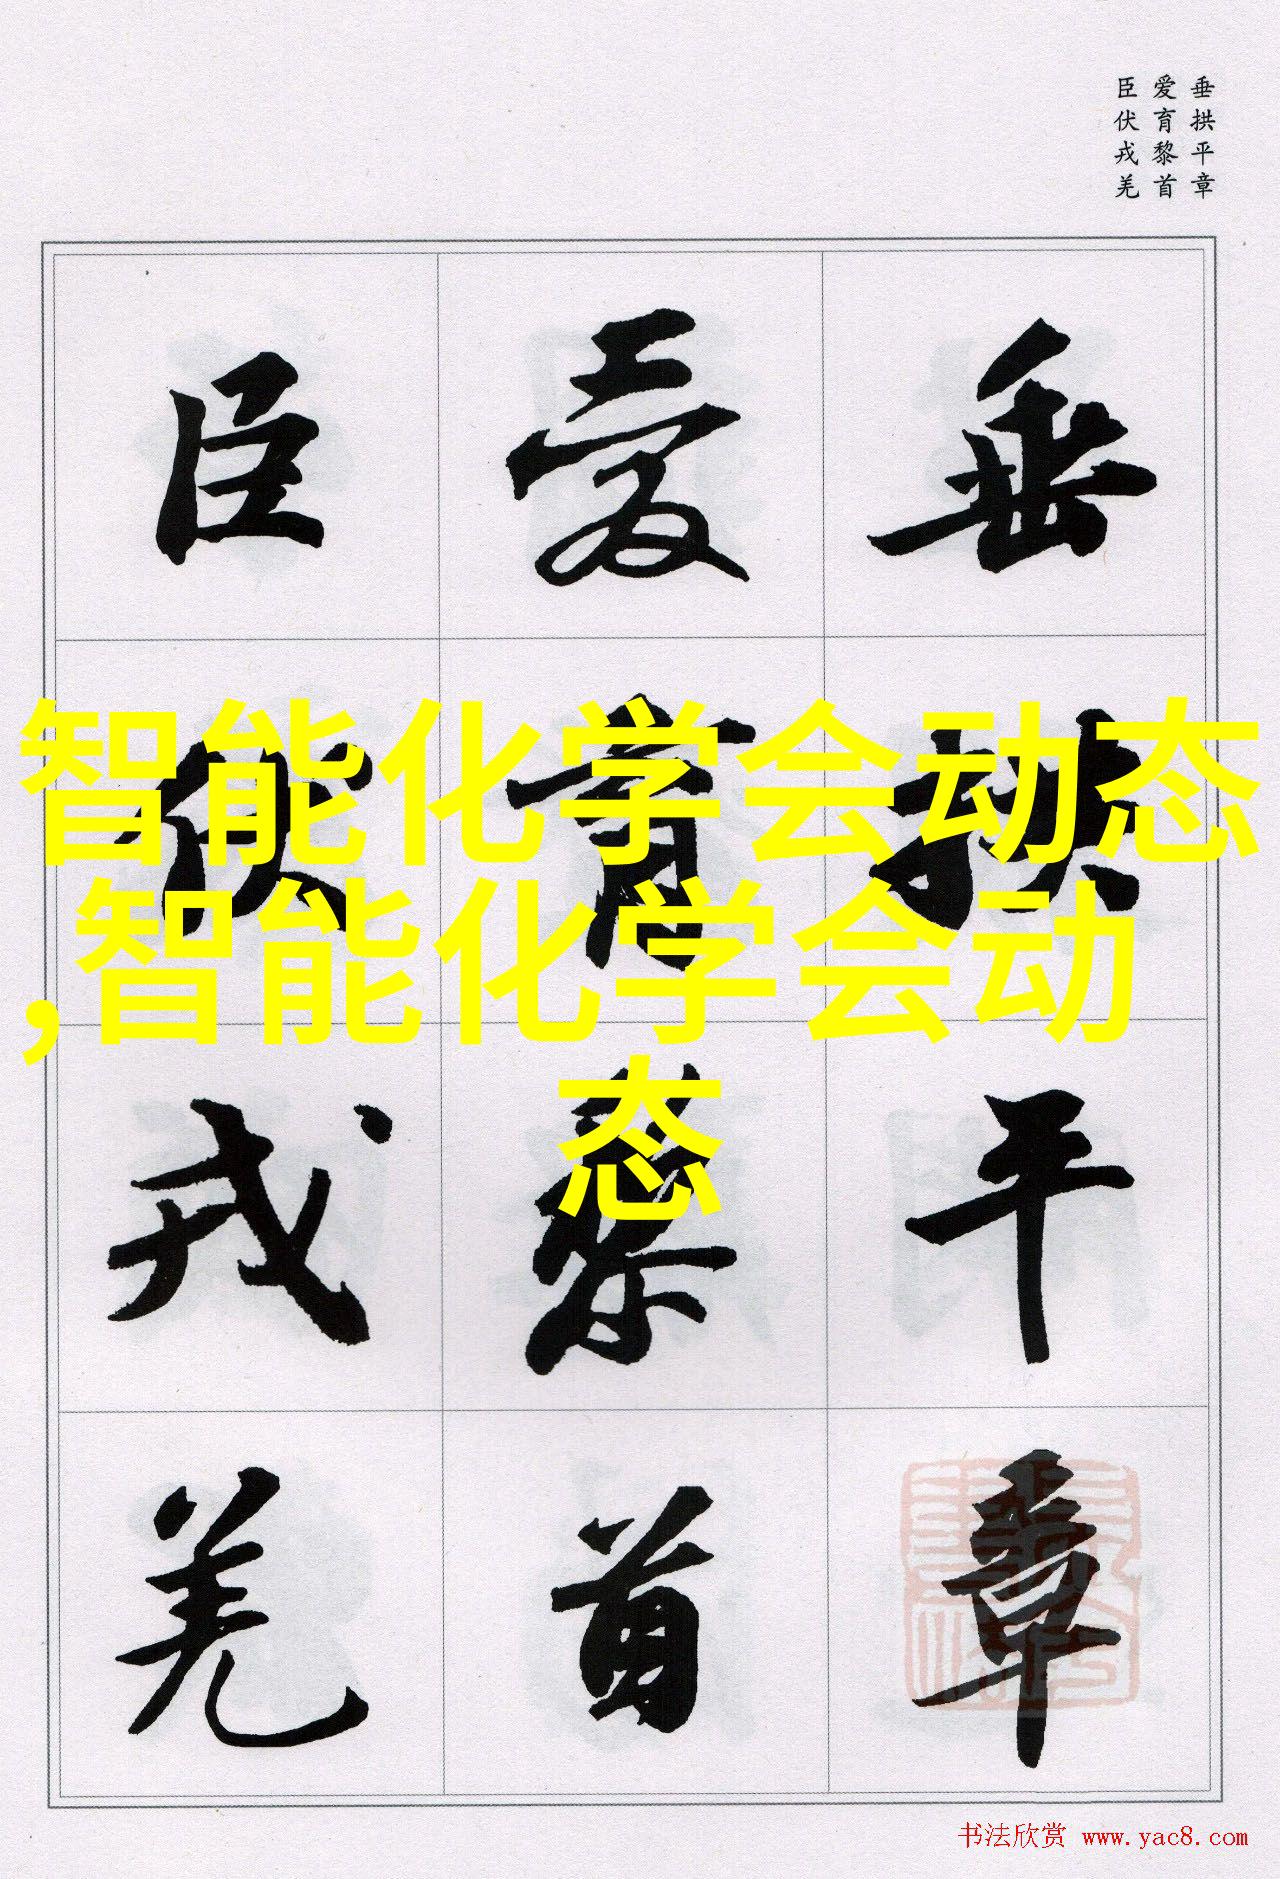 垂拱平章
爱育黎首
臣伏戎羌
垂拱平章
爱育黎首
臣伏戎羌
智能化学会动态
,智能化学会动
态
书法欣赏 www.yac8.com